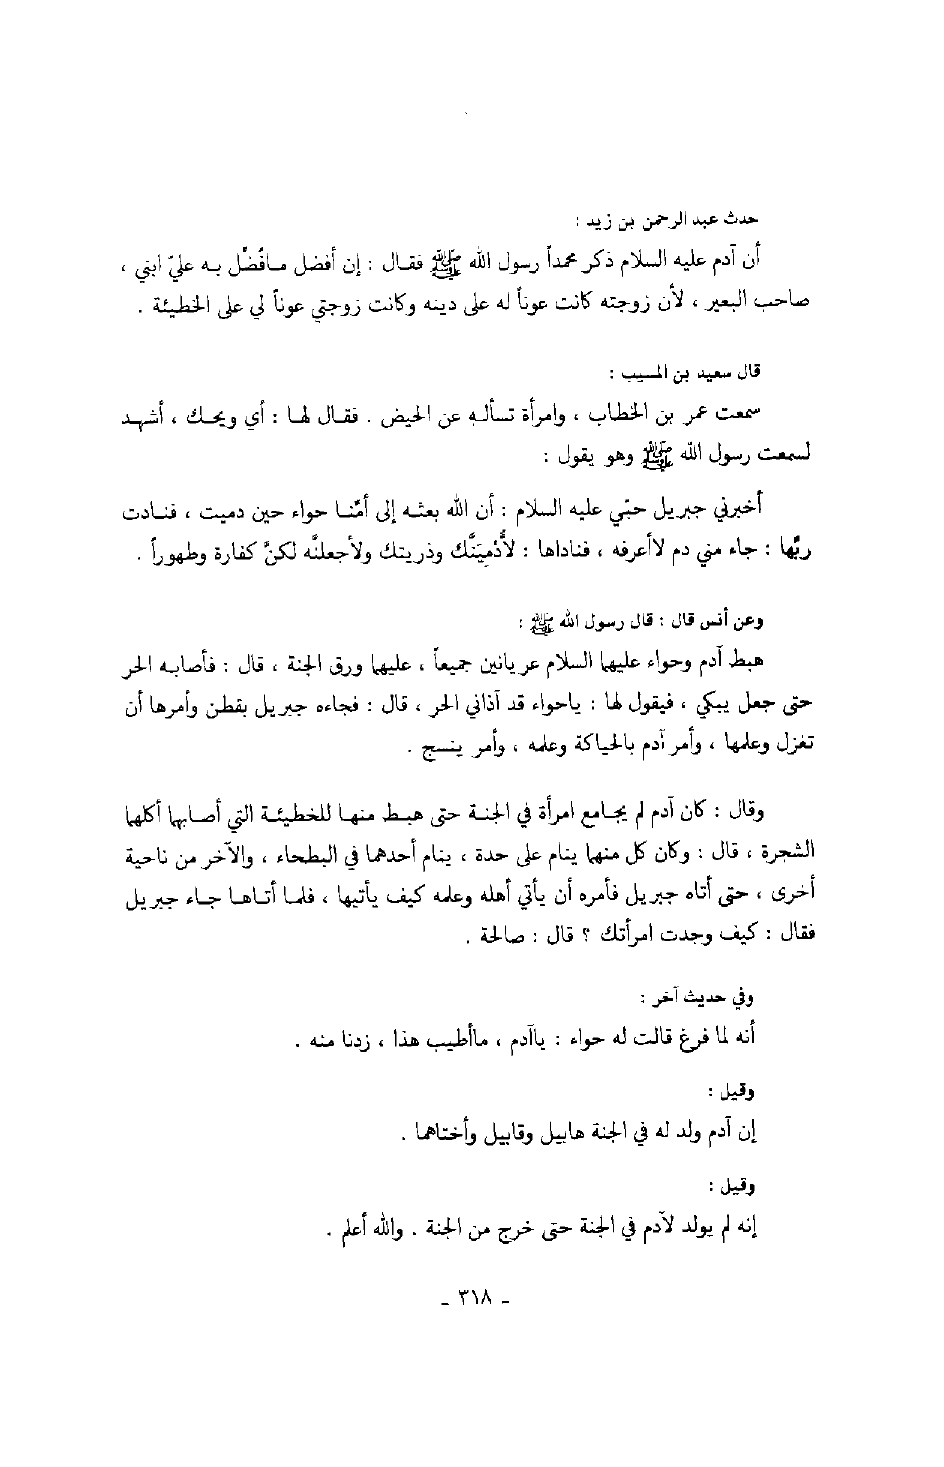 حدث عبد الرحمن بن زيد :
أن آدم عليه السلام ذكر محمداً رسول الله ﷺ فقال : إن أفضل مافُضِّل به عليّ ابني ،
صاحب البعير ، لأن زوجته كانت عوناً له على دينه وكانت زوجتي عوناً لي على الخطيئة .
قال سعيد بن المسيب :
سمعت عمر بن الخطاب ، وامرأة تسأله عن الحيض . فقال لها : أي ويحك ، أشهد
لسمعت رسول الله ﷺ وهو يقول :
أخبرني جبريل حبّي عليه السلام : أن الله بعثه إلى أمّنا حواء حين دميت ، فنادت
ربَّها : جاء مني دم لاأعرفه ، فناداها : لأُدْمِيَنَّك وذريتك ولأجعلنَّه لكنَّ كفارة وطهوراً .
وعن أنس قال : قال رسول الله ﷺ :
هبط آدم وحواء عليهما السلام عريانين جميعاً ، عليهما ورق الجنة ، قال : فأصابه الحر
حتى جعل يبكي ، فيقول لها : ياحواء قد آذاني الحر ، قال : فجاءه جبريل بقطن وأمرها أن
تغزل وعلمها ، وأمر آدم بالحياكة وعلمه ، وأمر ينسج .
وقال : كان آدم لم يجامع امرأة في الجنة حتى هبط منها للخطيئة التي أصابها أكلها
الشجرة ، قال : وكان كل منهما ينام على حدة ، ينام أحدهما في البطحاء ، والآخر من ناحية
أخرى ، حتى أتاه جبريل فأمره أن يأتي أهله وعلمه كيف يأتيها ، فلما أتاها جاء جبريل
فقال : كيف وجدت امرأتك ؟ قال : صالحة .
وفي حديث آخر :
أنه لما فرغ قالت له حواء : ياآدم ، ماأطيب هذا ، زدنا منه .
وقيل :
إن آدم ولد له في الجنة هابيل وقابيل وأختاهما .
وقيل :
إنه لم يولد لآدم في الجنة حتى خرج من الجنة . والله أعلم .
- ٣١٨ -